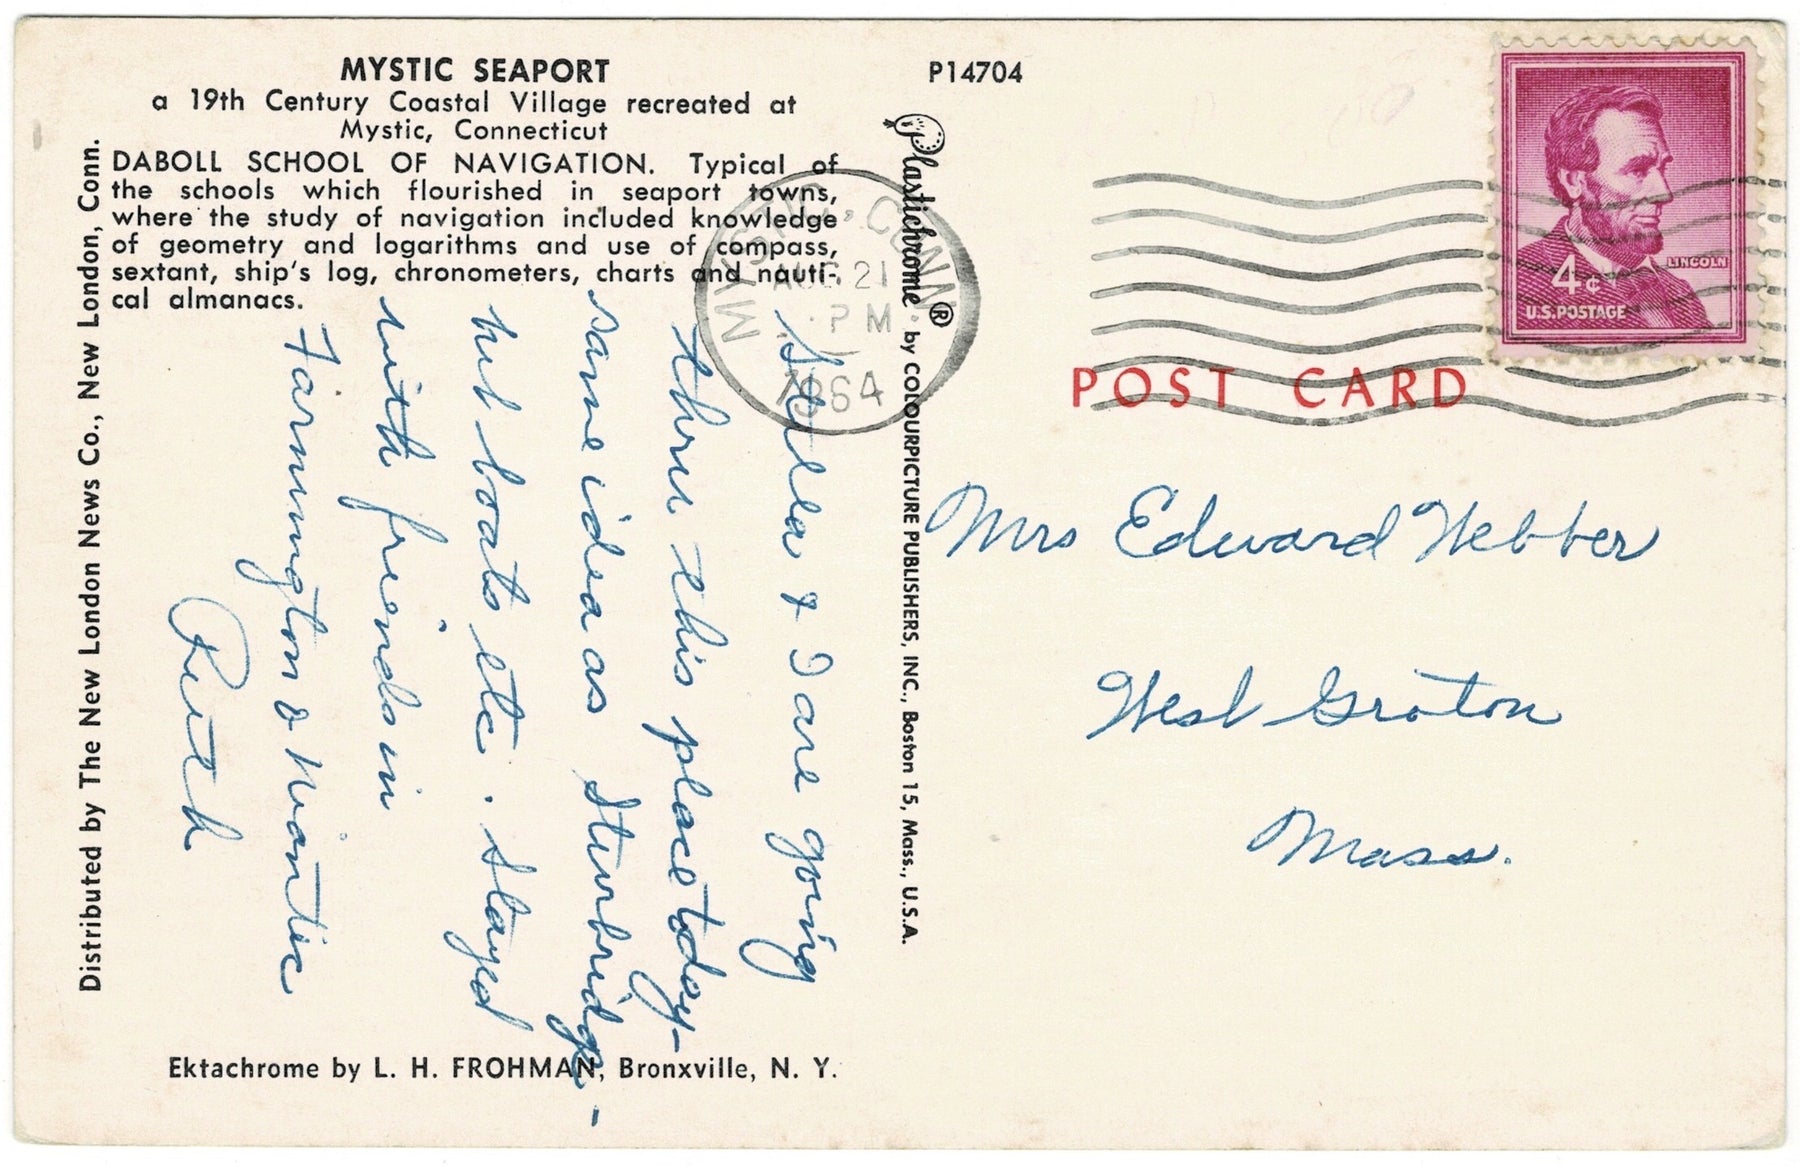 MYSTIC SEAPORT
a 19th Century Coastal Village recreated at
Mystic, Connecticut
DABOLL SCHOOL OF NAVIGATION. Typical of
the schools which flourished in seaport towns,
where the study of navigation included knowledge
of geometry and logarithms and use of compass,
sextant, ship's log, chronometers, charts and nauti-
cal almanacs.
P14704
Distributed by The New London News Co., New London, Conn.
Plastichrome® by COLOURPICTURE PUBLISHERS, INC., Boston 15, Mass., U.S.A.
MYSTIC, CONN.
AUG 21
PM
1964
LINCOLN
4¢
U.S. POSTAGE
POST CARD
Stella & I are going
thru this place today-
same idea as Sturbridge-
but boats etc. Stayed
with friends in
Farmington & Niantic
Ruth
Mrs Edward Webber
West Groton
Mass.
Ektachrome by L. H. FROHMAN, Bronxville, N. Y.